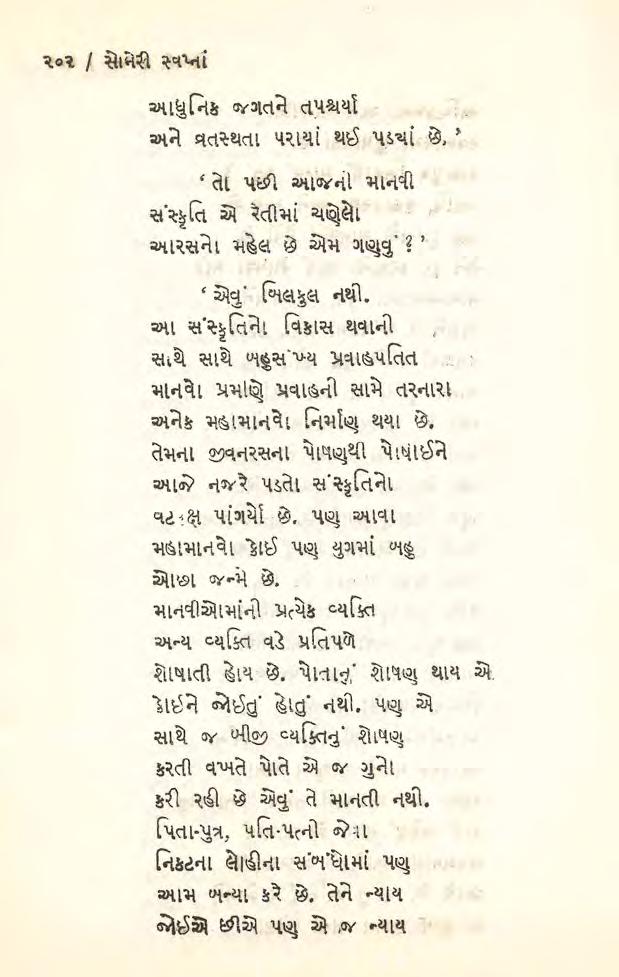 ૨૦૨ / સોનેરી સ્વપ્નાં
આધુનિક જગતને તપશ્ચર્યા
અને વ્રતસ્થતા પરાયાં થઈ પડ્યાં છે.’
‘તો પછી આજની માનવી
સંસ્કૃતિ એ રેતીમાં ચણેલો
આરસનો મહેલ છે એમ ગણવું ?’
‘એવું બિલકુલ નથી.
આ સંસ્કૃતિનો વિકાસ થવાની
સાથે સાથે બહુસંખ્ય પ્રવાહપતિત
માનવો પ્રમાણે પ્રવાહની સામે તરનારા
અનેક મહામાનવો નિર્માણ થયા છે.
તેમના જીવનરસના પોષણથી પોષાઈને
આજે નજરે પડતો સંસ્કૃતિનો
વટવૃક્ષ પાંગર્યો છે. પણ આવા
મહામાનવો કોઈ પણ યુગમાં બહુ
ઓછા જન્મે છે.
માનવીઓમાંની પ્રત્યેક વ્યક્તિ
અન્ય વ્યક્તિ વડે પ્રતિપળે
શોષાતી હોય છે. પોતાનું શોષણ થાય એ
કોઈને જોઈતું હોતું નથી. પણ એ
સાથે જ બીજી વ્યક્તિનું શોષણ
કરતી વખતે પોતે એ જ ગુનો
કરી રહી છે એવું તે માનતી નથી.
પિતા-પુત્ર, પતિ-પત્ની જેવા
નિકટના લોહીના સંબંધોમાં પણ
આમ બન્યા કરે છે. તેને ન્યાય
જોઈએ છીએ પણ એ જ ન્યાય